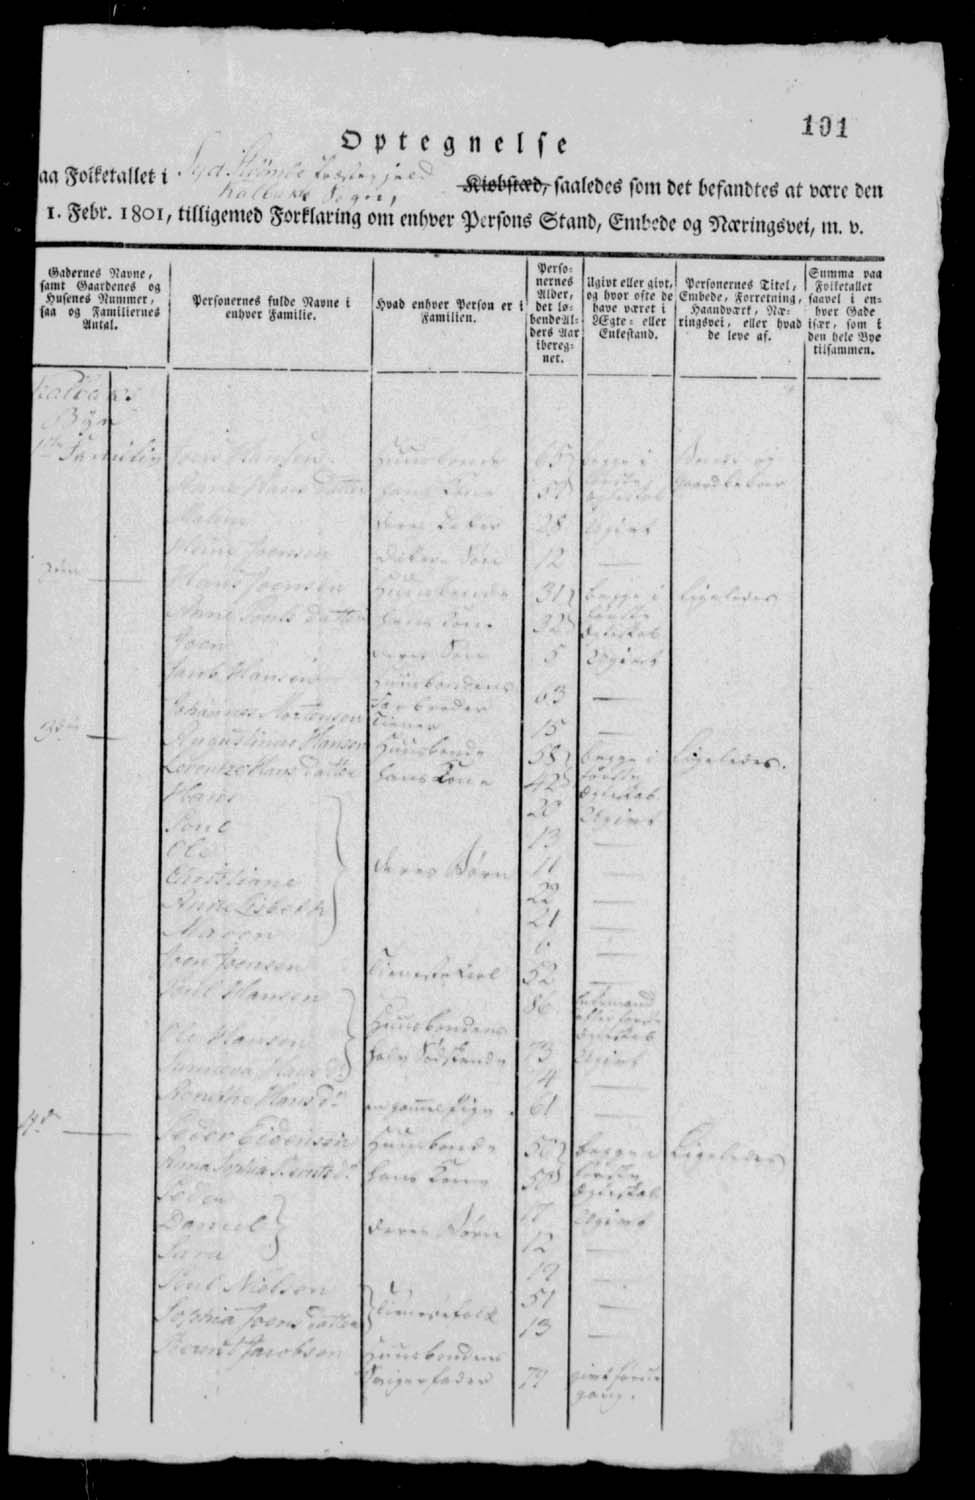 101
Optegnelse
aa Folketallet i Syd Strömöe Præstegjeld Kiøbstæd, saaledes som det befandtes at være den
Kalbaks Sogn,
1. Febr. 1801, tilligemed Forklaring om enhver Persons Stand, Embede og Næringsvei, m. v.
Gadernes Navne, samt Gaardenes og Husenes Nummer, saa og Familiernes Antal.
Personernes fulde Navne i enhver Familie.
Hvad enhver Person er i Familien.
Personernes Alder, det løbende Alders Aar iberegnet.
Ugivt eller givt, og hvor ofte de have været i Ægte- eller Enkestand.
Personernes Titel, Embede, Forretning, Haandværk, Næringsvei, eller hvad de leve af.
Summa paa Folketallet saavel i enhver Gade især, som i den hele Bye tilsammen.
Kalbaks
Bÿe
1te Familie Joen Hansen Huusbonde 65 begge i Bonde og
Anne Hans Datter hans Kone 59 første Ægteskab Gaardbeboer
Malene deres Datter 28 Ugivt
Heine Joensen Datters Søn 12 —
2den — Hans Joensen Huusbonde 31 begge i Ligeledes
Anne Pouls Datter hans Kone 32 første Ægteskab
Joen deres Søn 5 Ugivt
Jacob Hansen Huusbondens Farbroder 63 —
Johannes Mortensen Tiener 15 —
3die — Augustinus Hansen Huusbonde 58 begge i Ligeledes.
Lorentze Hans Datter hans Kone 42 første Ægteskab
Hans 20 Ugivt
Poul 13 —
Ole deres Børn 11 —
Christiane 22 —
Anne Lisbeth 21 —
Maren 6 —
Joen Joensen Tieneste Karl 52 —
Poul Hansen Huusbondens 86 Enkemand efter første Ægteskab
Ole Hansen halv Sødskende 73 Ugivt
Sunneva Hans D. 74 —
Hans D. en gammel Pige. 61 —
4de — Peder Eidensen Huusbonde 50 begge i Ligeledes
Anna Sophia Berntsd. hans Kone 50 første Ægteskab
Peder 17 Ugivt
Daniel deres Børn 12 —
Sara 19 —
Poul Nielsen Tienestefolk 51 —
Sophia Joens Datter 13 —
Bernt Jacobsen Huusbondens Svigerfader 77 givt første gang.